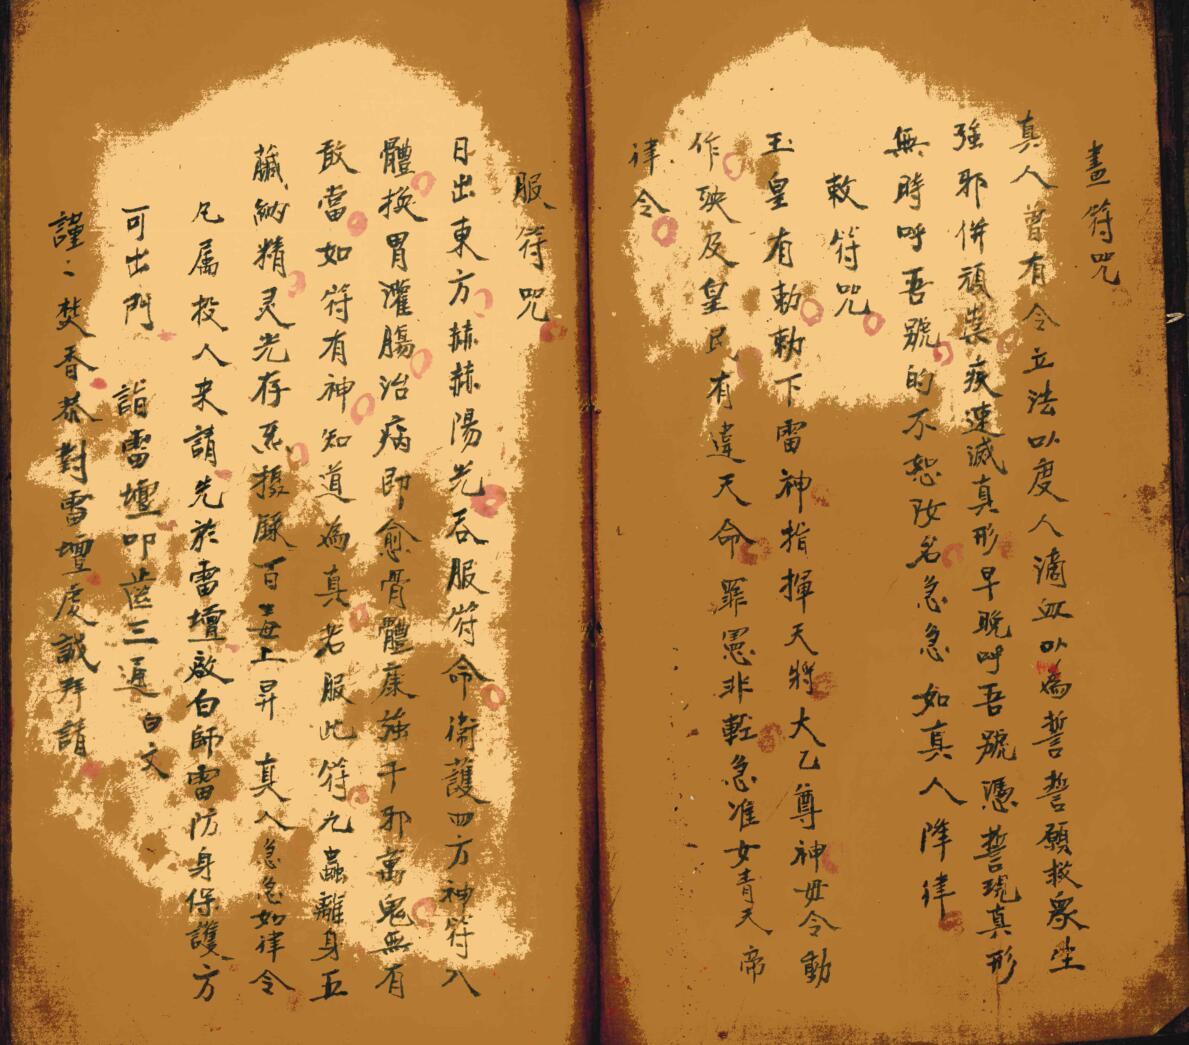 畫符咒
真人曾有令立法以度人滴血以為誓誓願救衆生
強邪併頑祟疾速滅真形早晚呼吾號憑誓現真形
無時呼吾號的不恕汝名急急如真人降律
敕符咒
玉皇有勅勅下雷神指揮天將大乙尊神毋令動
作殃及皇民有違天命罪憲非輕急准女青天帝
律令
服符咒
日出東方赫赫陽光吞服符命衛護四方神符入
體換胃灌腸治病即愈骨體康強千邪萬鬼無有
敢當如符有神知道為真若服此符九蟲離身五
臟納精灵光存百毒上昇真人急急如律令
凡属投人来請先於雷壇啟白師雷防身保護方
可出門 詣雷壇叩齒三通 白文
謹〻焚香恭對雷壇虔誠拜請